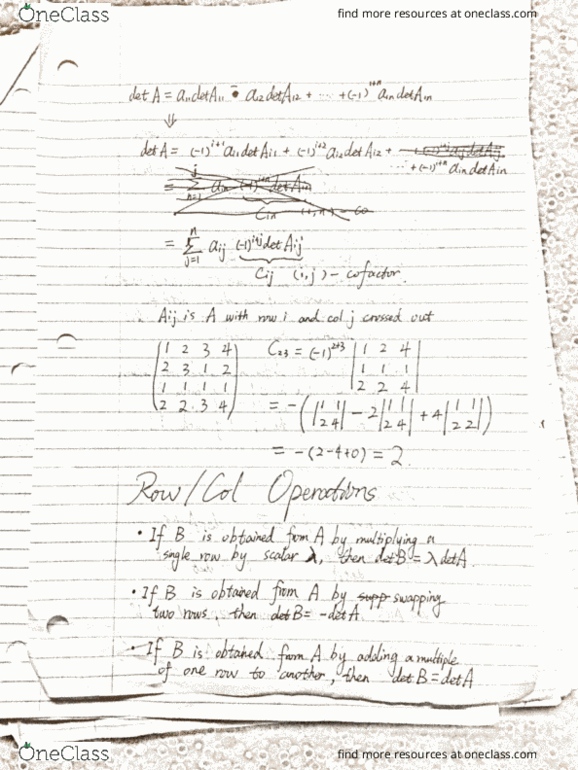 OneClass
find more resources at oneclass.com
det A = a11 det A11 - a12 det A12 + ... + (-1)^(1+n) a1n det A1n
⇓
det A = (-1)^(i+1) ai1 det Ai1 + (-1)^(i+2) ai2 det Ai2 +
... + (-1)^(i+n) ain det Ain
= Σ_(j=1)^n aij (-1)^(i+j) det Aij
Cij (i,j) - cofactor.
Aij is A with row i and col j crossed out
1 2 3 4
2 3 1 2
1 1 1 1
2 2 3 4
C23 = (-1)^(2+3) |1 2 4|
|1 1 1|
|2 2 4|
= - ( |1 1; 2 4| - 2 |1 1; 2 4| + 4 |1 1; 2 2| )
= - (2-4+0) = 2.
Row/Col Operations
• If B is obtained from A by multiplying a
single row by scalar λ, then det B = λ det A.
• If B is obtained from A by supp swapping
two rows, then det B = -det A
• If B is obtained from A by adding a multiple
of one row to another, then det B = det A
OneClass
find more resources at oneclass.com